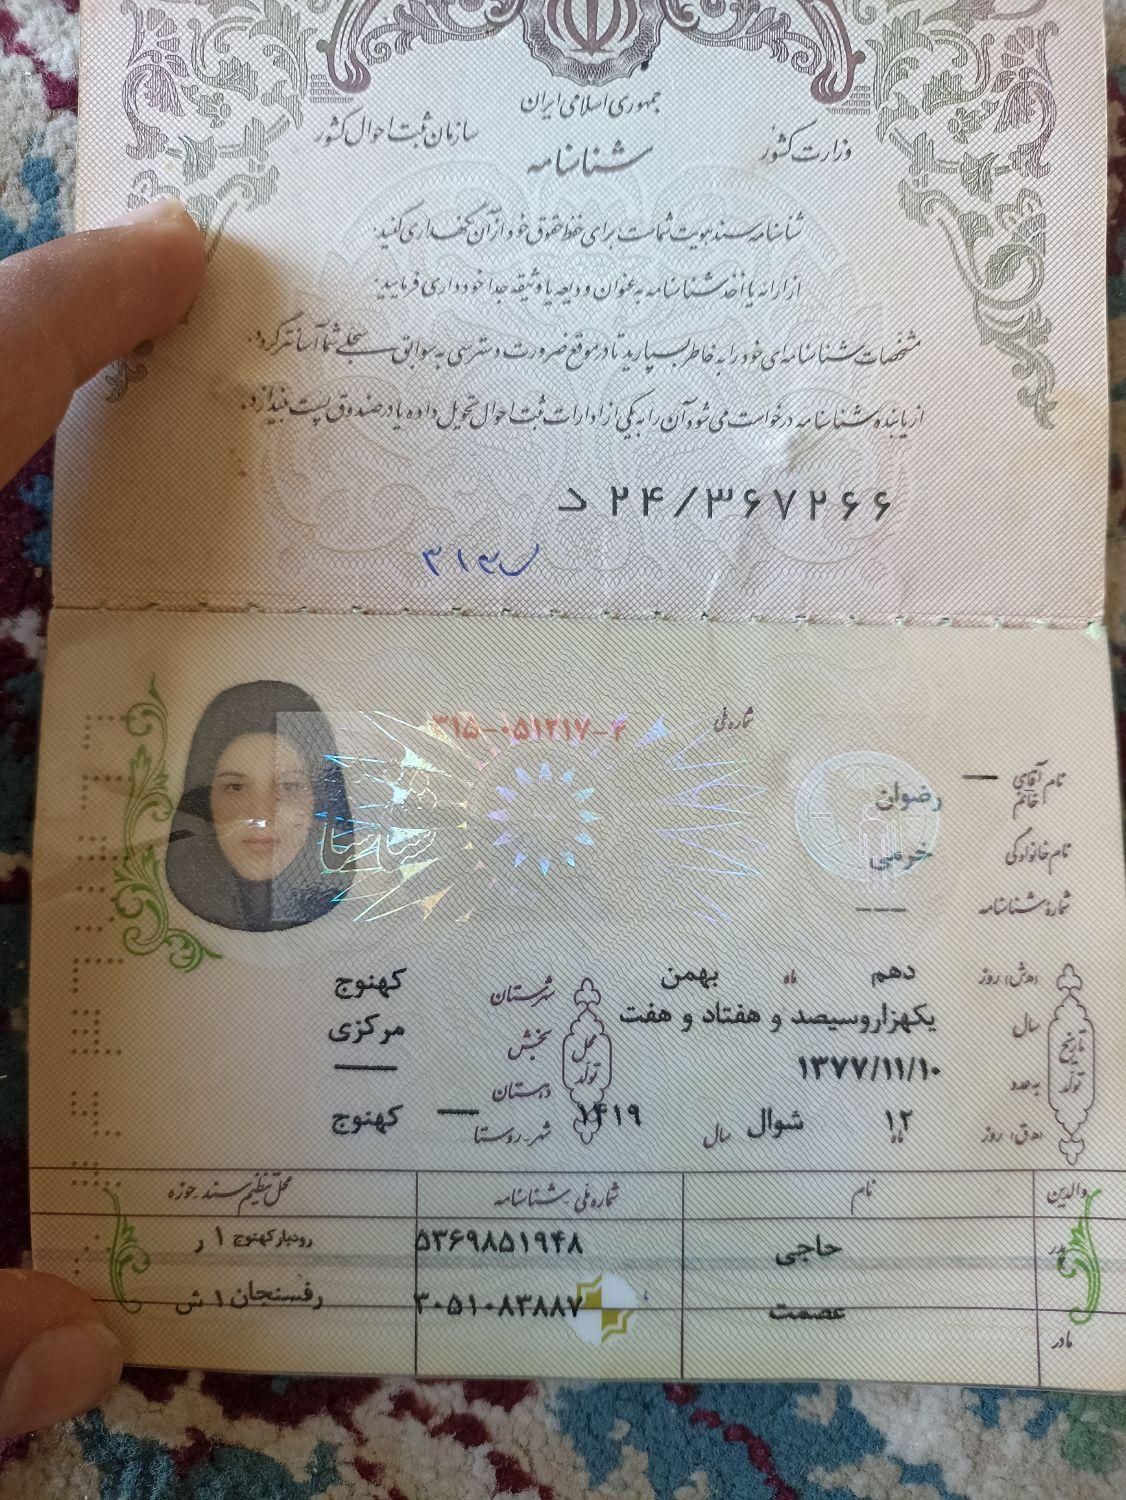 جمهوری اسلامی ایران
وزارت کشور
سازمان ثبت احوال کشور
شناسنامه
شناسنامه سند هویت شماست برای حفظ حقوق خود از آن نگهداری کنید.
از ارائه یا اخذ شناسنامه به عنوان ودیعه یا وثیقه جداً خودداری فرمایید.
مشخصات شناسنامه‌ای خود را به خاطر بسپارید تا در موقع ضرورت دسترسی به سوابق سجلی شما آسانتر گردد.
از یابنده شناسنامه درخواست می‌شود آن را به یکی از ادارات ثبت احوال تحویل داده یا در صندوق پست بیندازد.
د ۲۴/۳۶۷۲۶۶
شماره ملی ۳۱۵-۰۵۱۲۱۷-۴
نام آقای / خانم — رضوان
نام خانوادگی خرمی
شماره شناسنامه ---
تاریخ تولد
(هـ.ش) روز دهم ماه بهمن
سال یکهزاروسیصد و هفتاد و هفت
به عدد ۱۳۷۷/۱۱/۱۰
(هـ.ق) روز ۱۲ ماه شوال سال ۱۴۱۹
محل تولد
شهرستان کهنوج
بخش مرکزی
دهستان ——
شهر-روستا — کهنوج
والدین نام شماره ملی-شناسنامه محل تنظیم سند-حوزه
پدر حاجی ۵۳۶۹۸۵۱۹۴۸ رودبارکهنوج ۱ ر
مادر عصمت ۳۰۵۱۰۸۳۸۸۷ رفسنجان ۱ ش